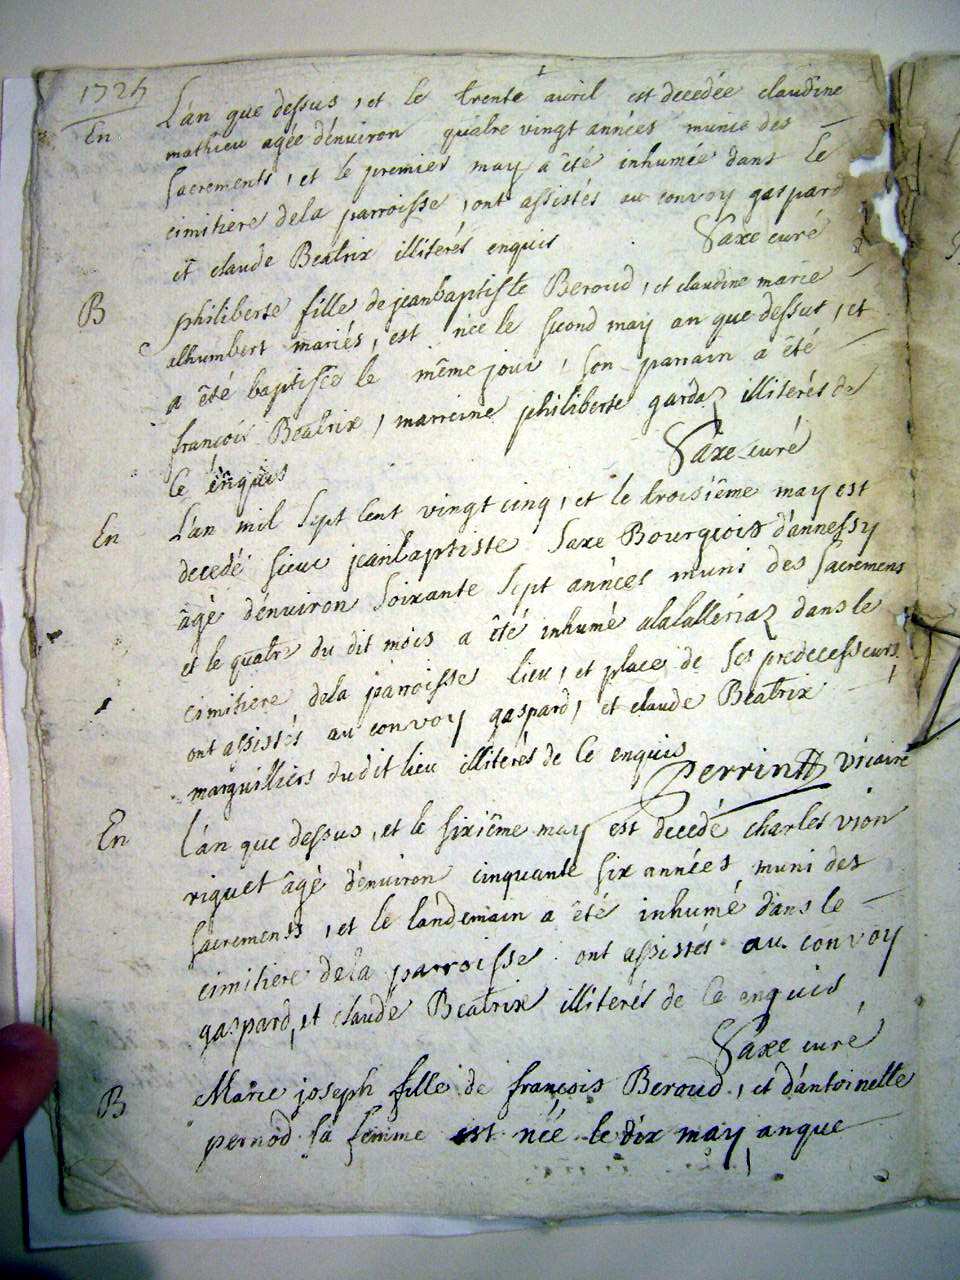 1725
En L'an que dessus, et le trente auril est decedée claudine
mathieu agée d'enuiron quatre vingt années munie des
sacrements, et le premier may a êté inhumée dans le
cimitiere dela parroisse, ont assistés au convoy gaspard
et claude Beatrix illiterés enquis Saxe curé
B philiberte fille de jeanbaptiste Beroud, et claudine marie
alhumbert mariés, est née le second may an que dessus, et
a êté baptisée le même jour, son parrain a êté
françois Beatrix, marreine philiberte gardaz illiterés de
ce enquis Saxe curé
En L'an mil sept cent vingt cinq, et le troisiême may est
decedé sieur jeanbaptiste Saxe Bourgeois d'annessy
âgé d'enuiron soixante sept années muni des sacremens
et le quatre du dit mois a êté inhumé alalalleriaz dans le
cimitiere dela parroisse lieu, et place de ses predecesseurs
ont assistés au convoy gaspard, et claude Beatrix
marguilliers dudit lieu illiterés de ce enquis
Perrin vicaire
En L'an que dessus, et le sixiême may est decedé charles vion
riguet âgé d'enuiron cinquante six années muni des
sacrements, et le landemain a êté inhumé dans le
cimitiere dela parroisse ont assistés au convoy
gaspard, et claude Beatrix illiterés de ce enquis
Saxe curé
B Marie joseph fille de françois Beroud, et d'antoinette
pernod sa femme est née le dix may anque